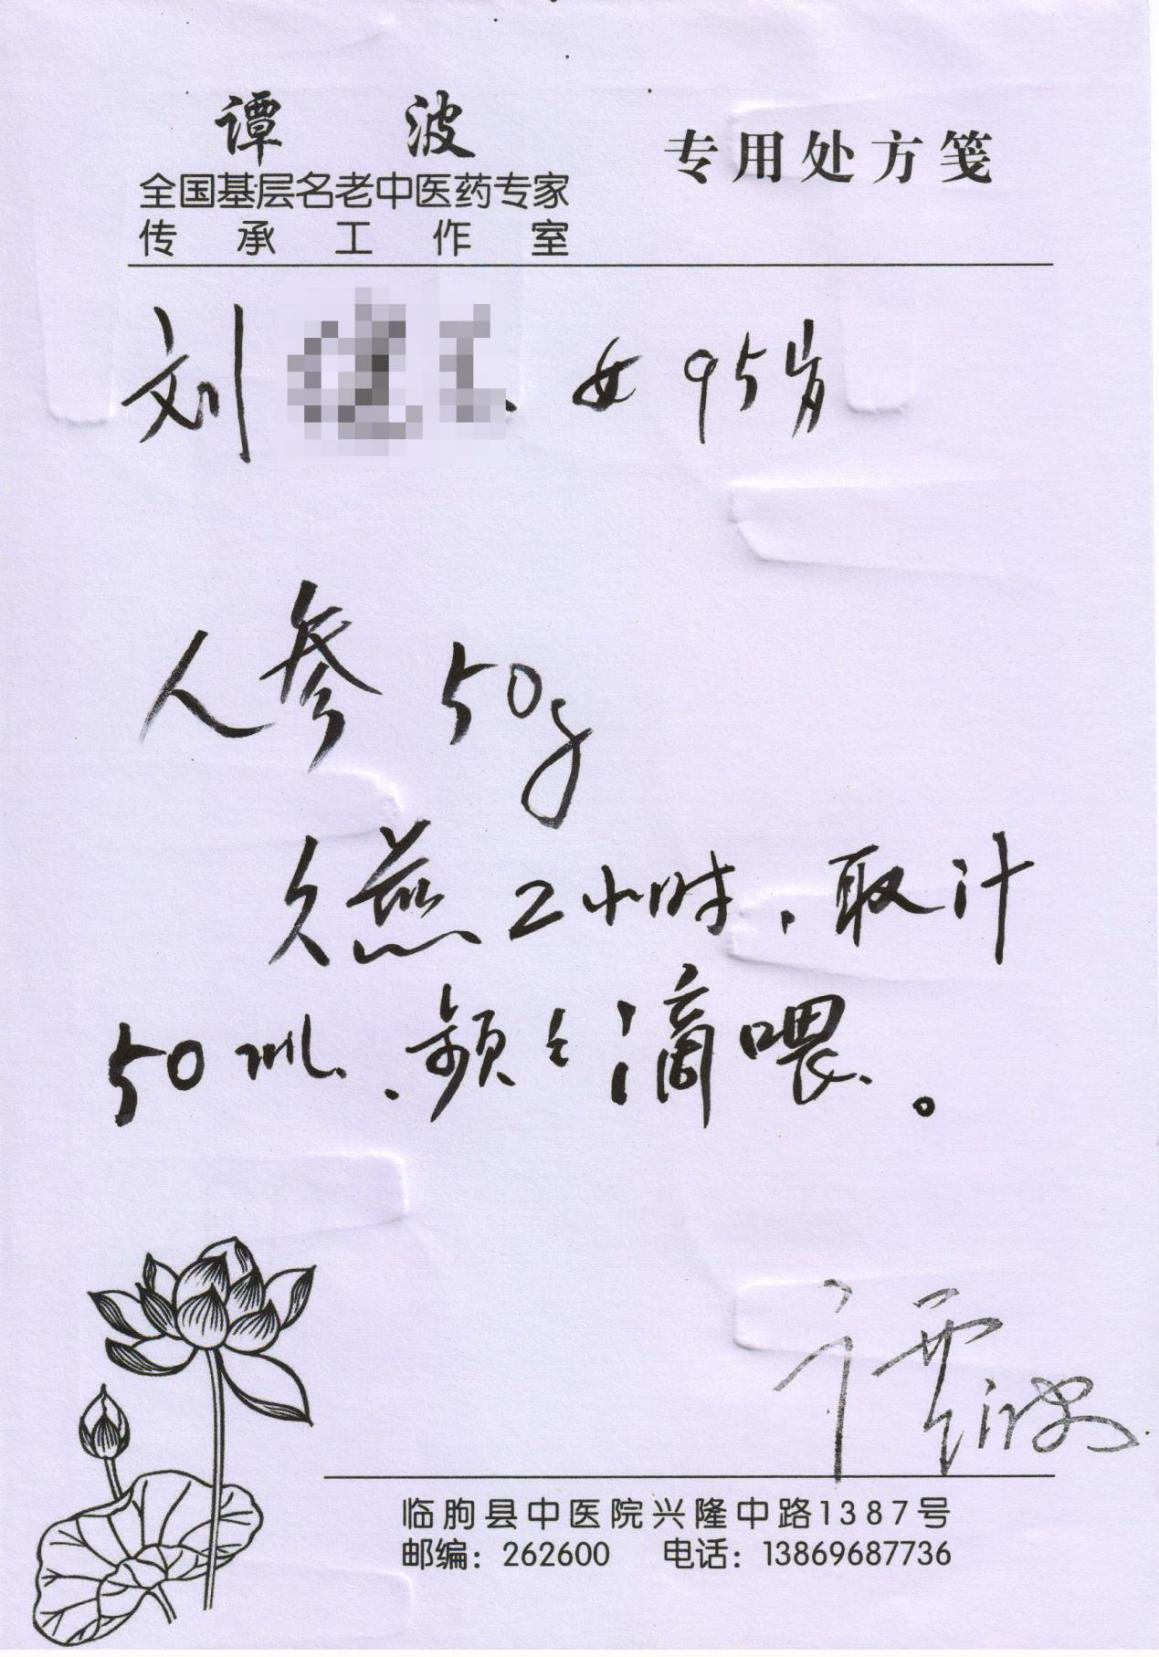 谭 波
全国基层名老中医药专家
传承工作室
专用处方笺
刘 女 95岁
人参 50g
久蒸2小时，取汁
50ml，频々滴喂。
谭波
临朐县中医院兴隆中路1387号
邮编：262600 电话：13869687736